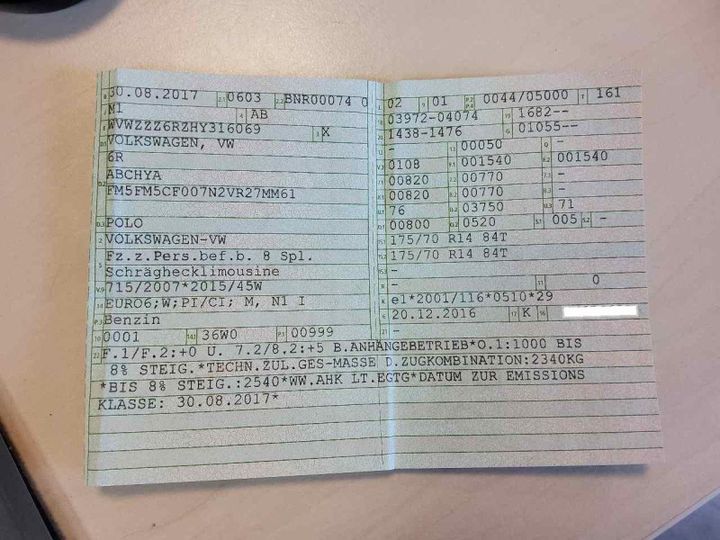 30.08.2017 0603 BNR00074 0
M1 AB
WVWZZZ6RZHY316069 X
VOLKSWAGEN, VW
6R
ABCHYA
FM5FM5CF007N2VR27MM61
POLO
VOLKSWAGEN-VW
Fz.z.Pers.bef.b. 8 Spl.
Schräghecklimousine
715/2007*2015/45W
EURO6;W;PI/CI; M, N1 I
Benzin
0001 36W0 00999
02 01 0044/05000 161
03972-04074 1682--
1438-1476 01055--
- 00050 -
0108 001540 001540
00820 00770 -
00820 00770 -
76 03750 71
00800 0520 005 -
175/70 R14 84T
175/70 R14 84T
-
- 0
e1*2001/116*0510*29
20.12.2016 K
-
F.1/F.2:+0 U. 7.2/8.2:+5 B.ANHANGEBETRIEB*O.1:1000 BIS
8% STEIG.*TECHN.ZUL.GES-MASSE D.ZUGKOMBINATION:2340KG
*BIS 8% STEIG.:2540*WW.AHK LT.EGTG*DATUM ZUR EMISSIONS
KLASSE: 30.08.2017*